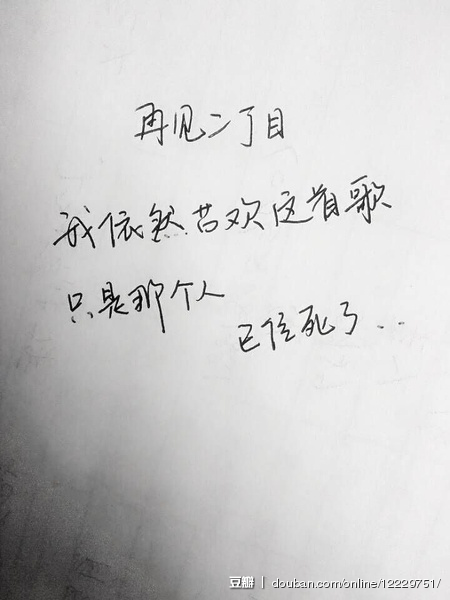 再见二丁目
我依然喜欢这首歌
只是那个人
已经死了..
豆瓣 | douban.com/online/12229751/